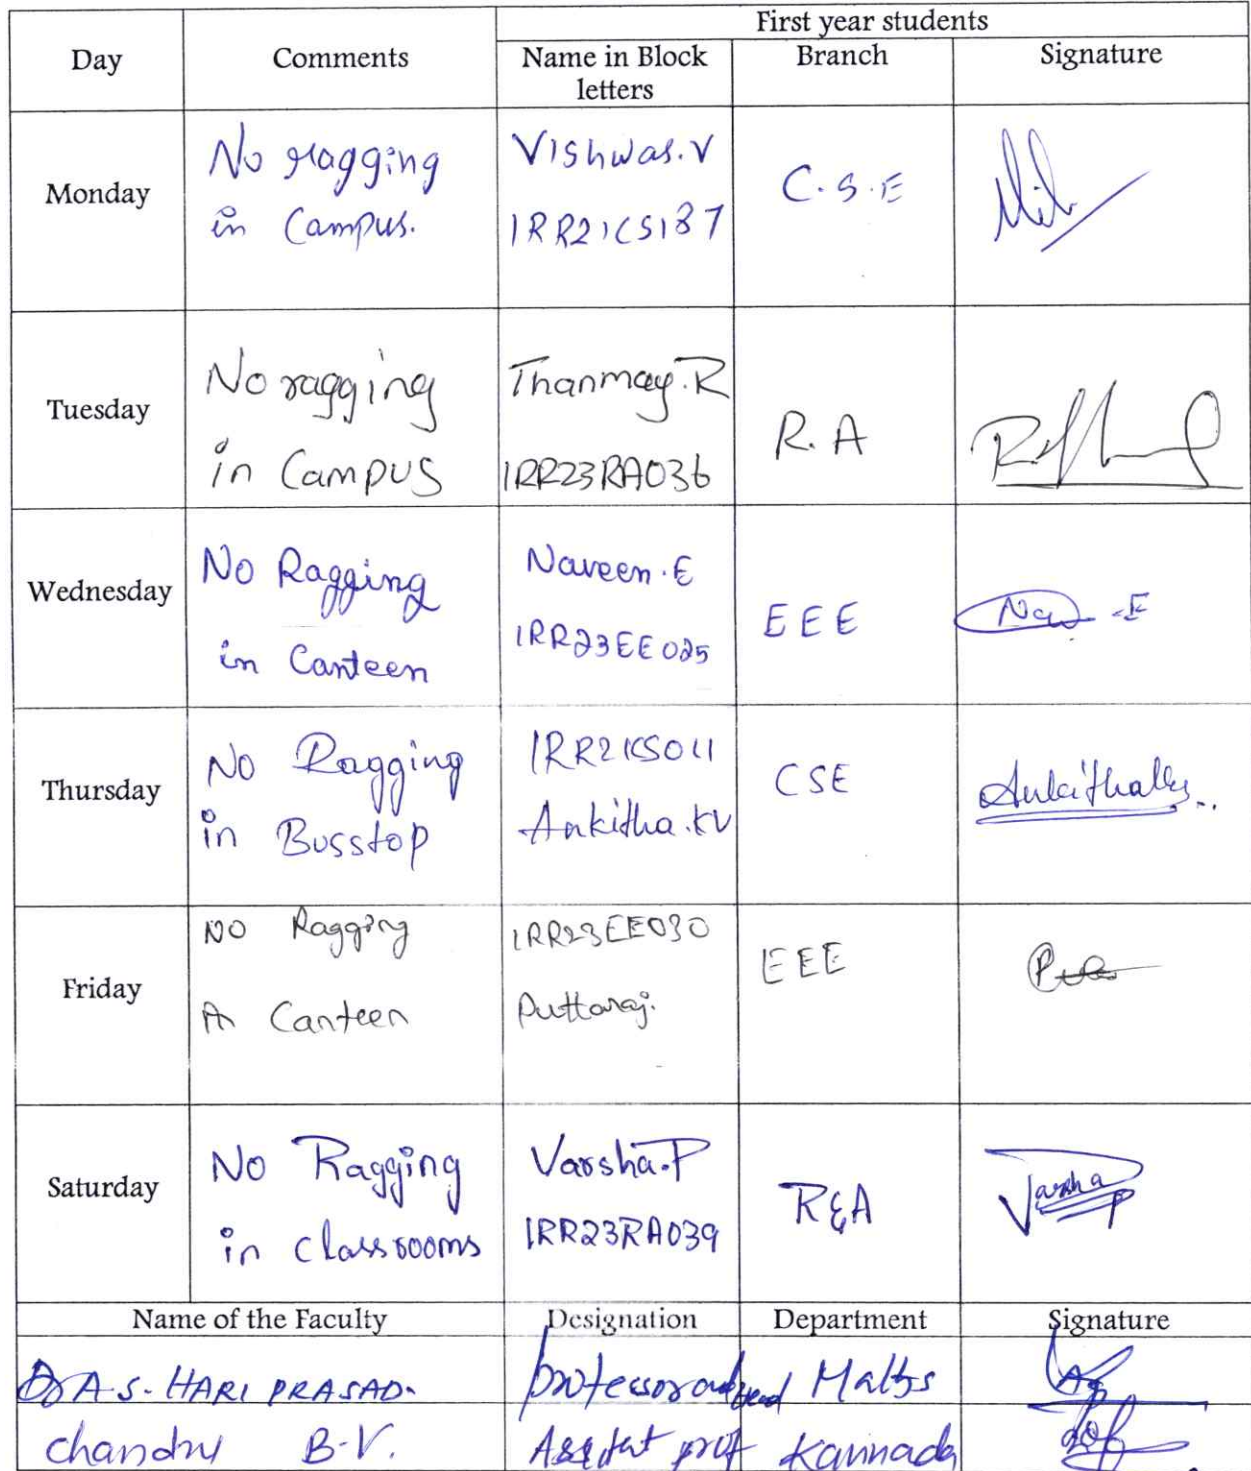 First year students
Day Comments Name in Block letters Branch Signature
Monday
No ragging
in Campus.
Vishwas.V
1RR21CS187
C.S.E
Tuesday
No ragging
in Campus
Thanmay.R
1RR23RA036
R.A
Wednesday
No Ragging
in Canteen
Naveen.E
1RR23EE025
EEE
Thursday
No Ragging
in Busstop
1RR21CS011
Ankitha.KV
CSE
Ankitha
Friday
NO Ragging
Canteen
1RR23EE030
Puttaraj.
EEE
Saturday
No Ragging
in classrooms
Varsha.P
1RR23RA039
R&A
Varsha P
Name of the Faculty Designation Department Signature
Dr A.S. HARI PRASAD. professor and Head Maths
chandru B.V. Assitat prof Kannada